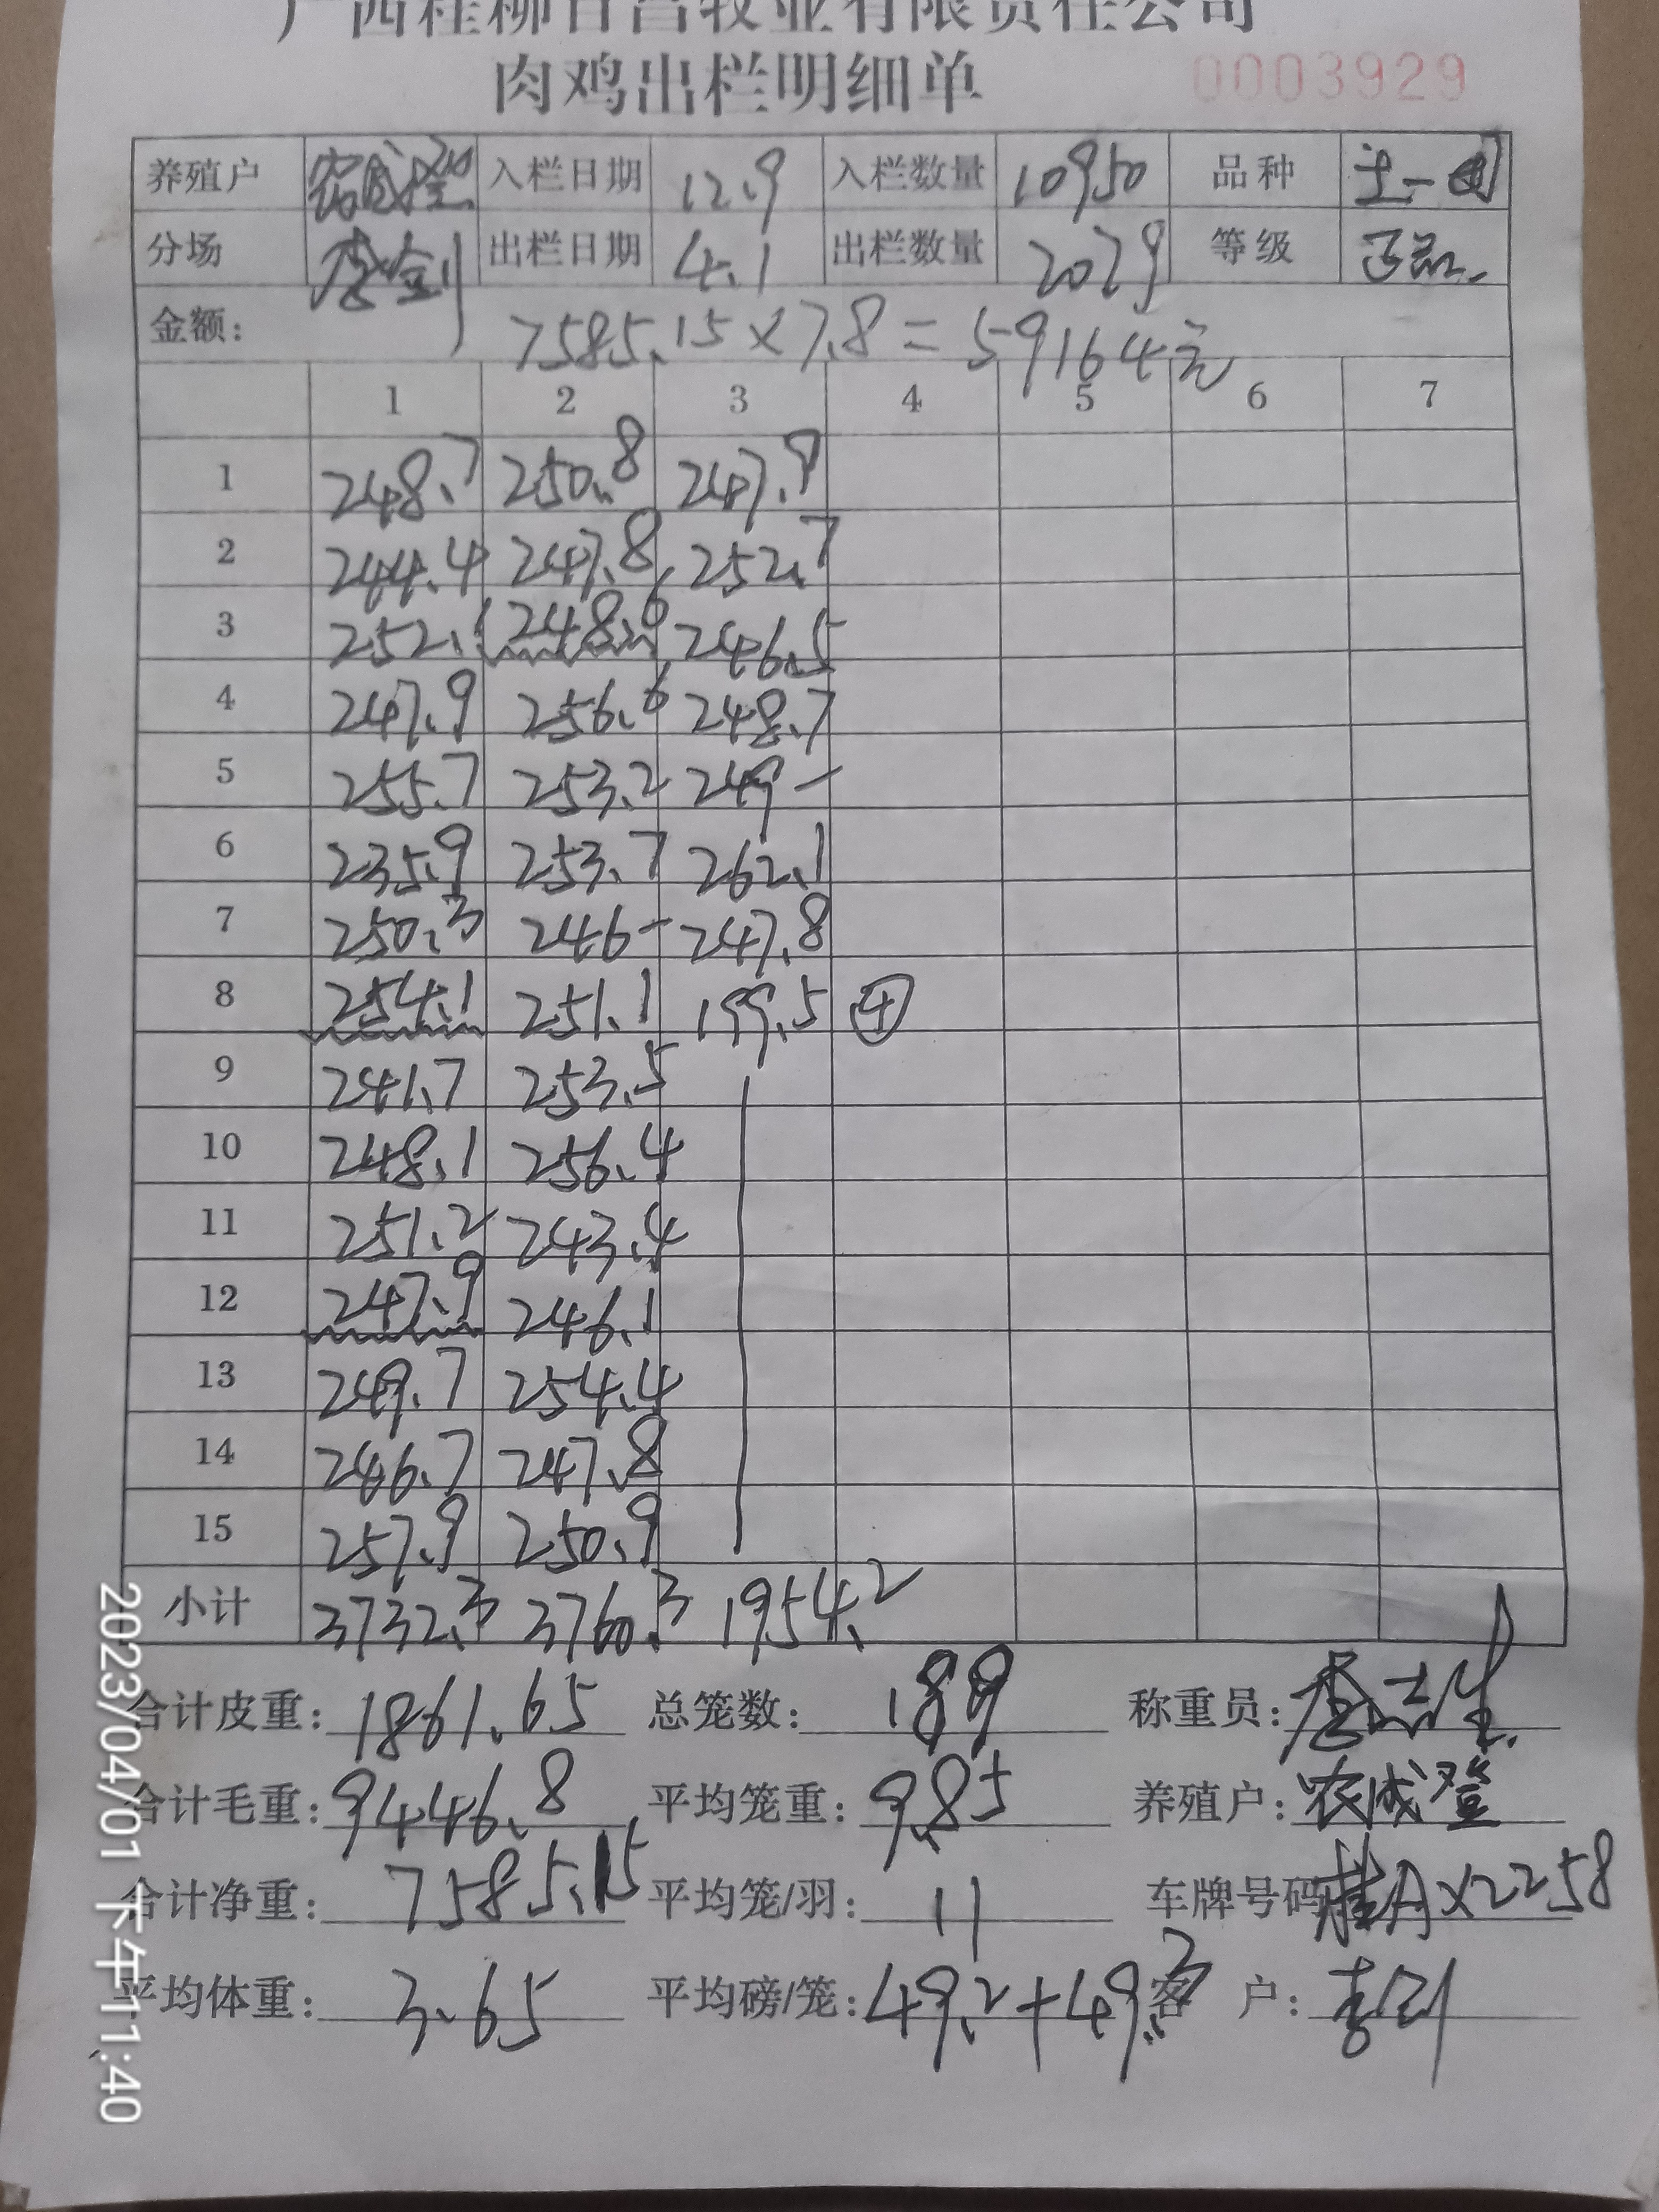 广西桂柳百昌牧业有限责任公司
肉鸡出栏明细单 0003929
养殖户 农成登 入栏日期 12.9 入栏数量 10950 品种
分场 出栏日期 4.1 出栏数量 2079 等级 正品
金额: 7585.15×7.8=59164元
1 2 3 4 5 6 7
1 248.7 250.8 247.9
2 244.4 247.8 252.7
3 252.1 248.6 246.5
4 247.9 256.6 248.7
5 255.7 253.2 249-
6 235.9 253.7 262.1
7 250.3 246- 247.8
8 254.1 251.1 199.5 ④
9 241.7 253.5
10 248.1 256.4
11 251.2 243.4
12 247.9 246.1
13 249.7 254.4
14 246.7 247.8
15 257.9 250.9
小计 3732.3 3760.3 1954.2
合计皮重: 1861.65 总笼数: 189 称重员:
合计毛重: 9446.8 平均笼重: 9.85 养殖户: 农成登
合计净重: 7585.15 平均笼/羽: 11 车牌号码 桂AX2258
平均体重: 3.65 平均磅/笼: 49.2+49.3 客户:
2023/04/01 下午11:40